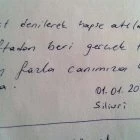 t denilerek hapse atıla
ftadan beri gerçek t
n fazla canımıza
a.
01.01.20
Silivri